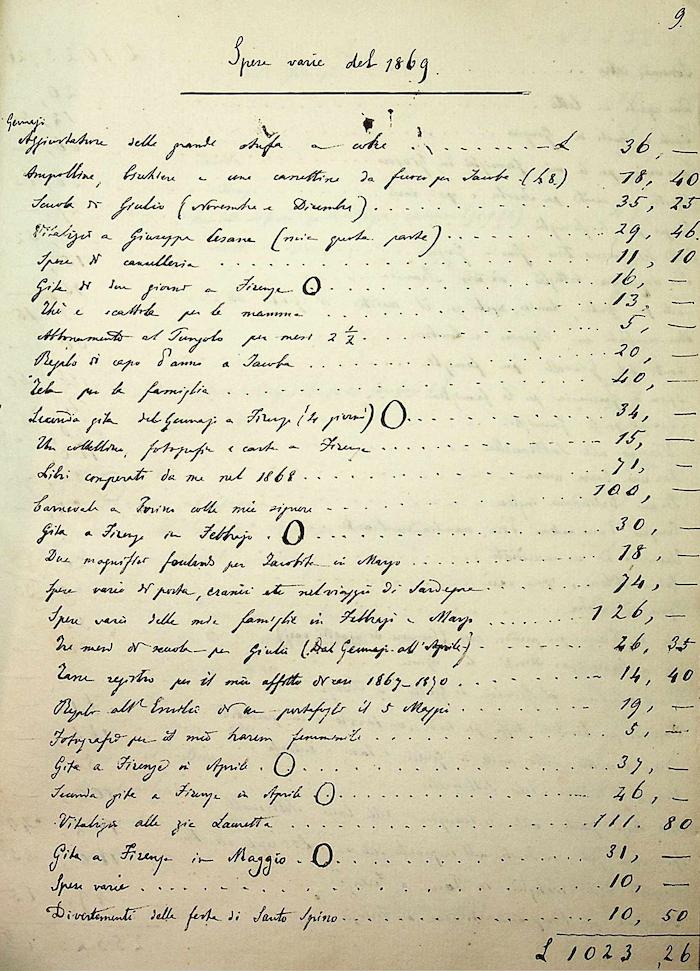 9.
Spese varie del 1869.
Gennajo
Aggiustatura della grande stufa a coke . . . . . . . . . £ 36, —
Ampolline, bicchiere e una carrettina da fuoco per Jacobo (48.) 18, 40
Scuola di Giulio (Novembre e Dicembre) . . . . . . . . . 35, 25
Vitalizio a Giuseppe Cesana (mia quota parte) . . . . . . . . . 29, 46
Spese di cancelleria . . . . . . . . . 11, 10
Gita di due giorni a Firenze O . . . . . . . . . 16, —
Thè e scattola per la mamma . . . . . . . . . 13, —
Abbonamento al Pungolo per mesi 2 ½ . . . . . . . . . 5, —
Regalo di capo d'anno a Jacoba . . . . . . . . . 20, —
Tela per la famiglia . . . . . . . . . 40, —
Seconda gita del Gennajo a Firenze (4 giorni) O . . . . . . . . . 34, —
Un coltellino, fotografie e carta a Firenze . . . . . . . . . 15, —
Libri comperati da me nel 1868 . . . . . . . . . 71, —
Carnevale a Torino colle mie signore . . . . . . . . . 100, —
Gita a Firenze in Febbrajo . O . . . . . . . . . 30, —
Due magnifici foulards per Jacobita in Marzo . . . . . . . . . 18, —
Spese varie di posta, cranii etc nel viaggio di Sardegna . . . . . . . . . 74, —
Spese varie della mia famiglia in Febbrajo e Marzo . . . . . . . . . 126, —
Tre mesi di scuola per Giulio (Dal Gennajo all'Aprile) . . . . . . . . . 26, 35
Tassa registro per il mio affitto di casa 1869-1870 . . . . . . . . . 14, 40
Regalo all' Emilia di un portafogli il 5 Maggio . . . . . . . . . 19, —
Fotografie per il mio harem femminile . . . . . . . . . 5, —
Gita a Firenze in Aprile . O . . . . . . . . . 37, —
Seconda gita a Firenze in Aprile O . . . . . . . . . 26, —
Vitalizio alla zia Lauretta . . . . . . . . . 111. 80
Gita a Firenze in Maggio . O . . . . . . . . . 31, —
Spese varie . . . . . . . . . 10, —
Divertimenti della festa di Santo Spirito . . . . . . . . . 10, 50
£ 1023, 26